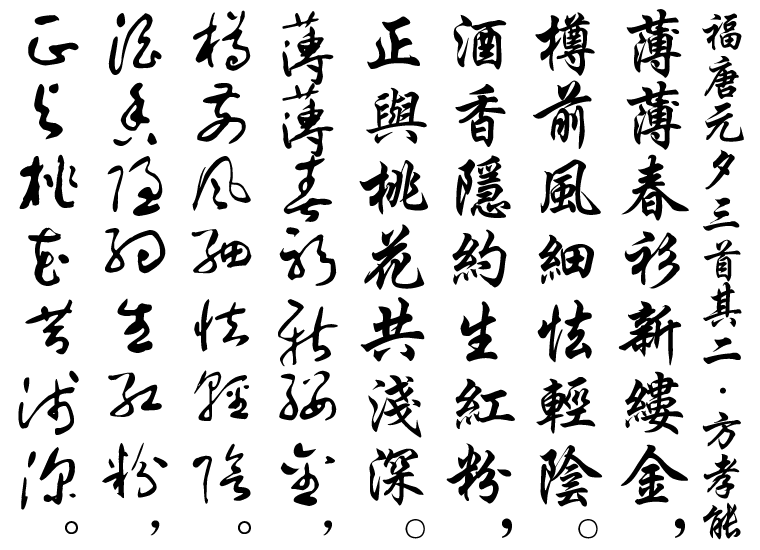 福唐元夕三首其二·方孝能
薄薄春衫新縷金，
樽前風細怯輕陰。
酒香隱約生紅粉，
正與桃花共淺深。
薄薄春衫新縷金，
樽前風細怯輕陰。
酒香隱約生紅粉，
正與桃花共淺深。